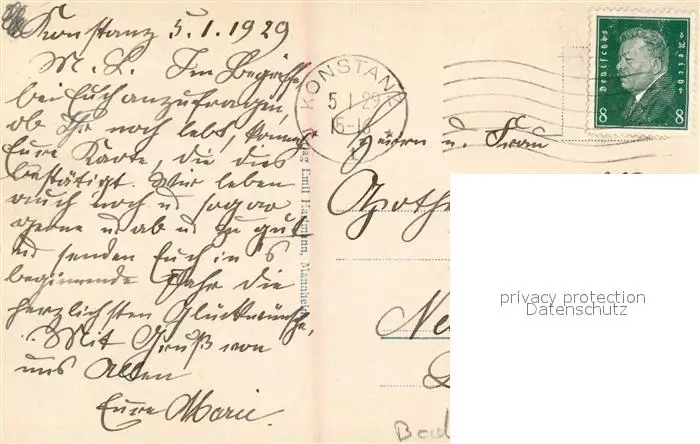 Konstanz 5.1.1929
M. L. Im Begriffe,
bei Euch anzufragen,
ob Ihr noch lebt, kommt
Eure Karte, die dies
bestätigt. Wir leben
auch noch u sogar
gerne u ab u zu gut
und senden Euch in's
beginnende Jahr die
herzlichsten Glückwünsche.
Mit Gruß von
uns Allen
Eure Marie.
Verlag Emil Hartmann, Mannheim
KONSTANZ
5 1 29
15-16
* 1
Deutsches Reich
8 8
Herrn u. Frau
Apothe
Ne
Bad
privacy protection
Datenschutz